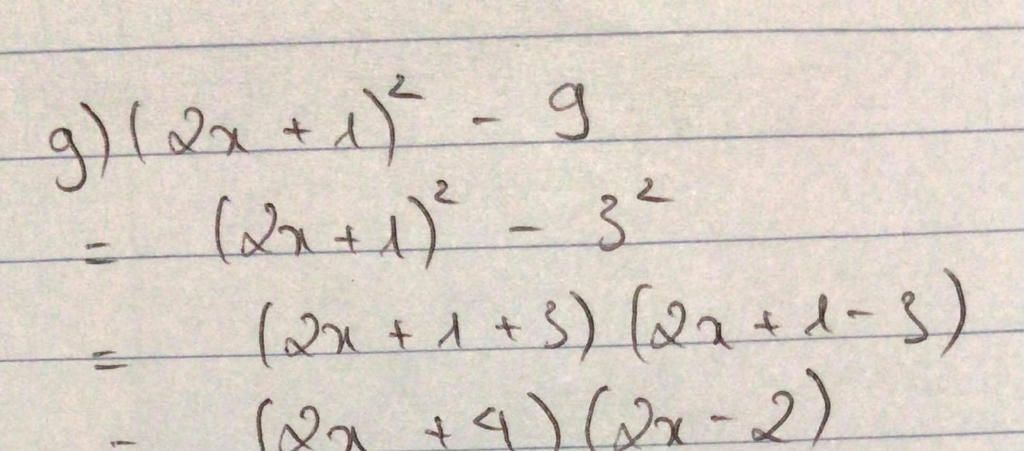 g) (2x + 1)² - 9
= (2x + 1)² - 3²
= (2x + 1 + 3) (2x + 1 - 3)
= (2x + 4) (2x - 2)